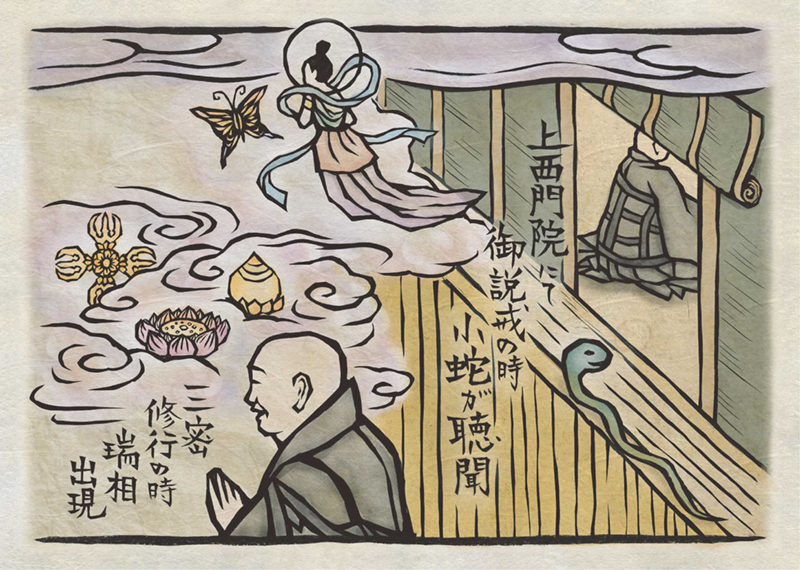 上西門院にて
御説戒の時
小蛇が聴聞
三密
修行の時
瑞相
出現